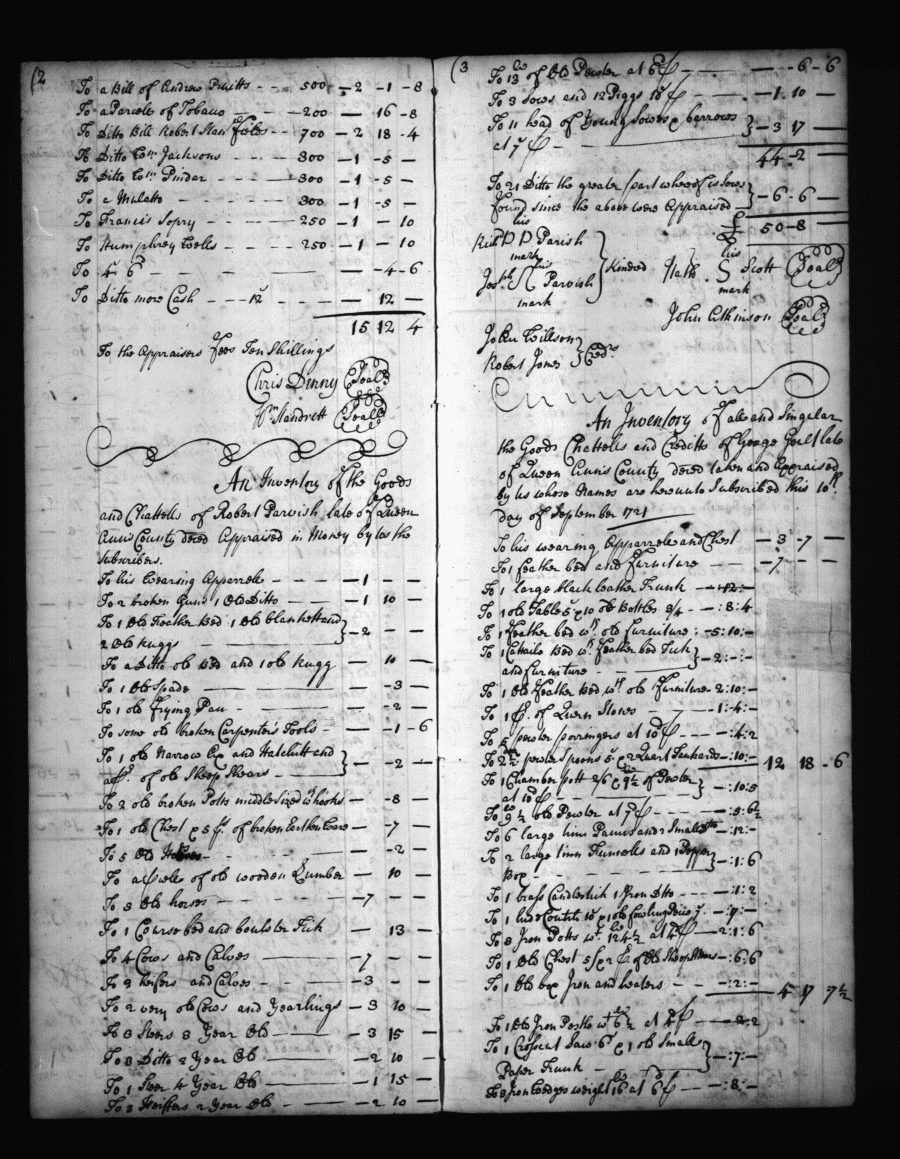 (2
To a Bill of Andrew Pruitts - - 500 - 2 - 1 - 8
To a Parcele of Tobaco - - 200 - - 16 - 8
To Ditto Bill Robert Hanfields - - 700 - 2 18 - 4
To Ditto Coll. Jacksons - - - 300 - 1 - 5 -
To Ditto Coll. Pindar - - - 300 - 1 - 5 -
To a Mulatto - - - 300 - 1 - 5 -
To Francis Sopry - - - 250 - 1 - 10
To Humphrey Wells - - - 250 - 1 - 10
To 4s 6d - - - - 4 - 6
To Ditto more Cash - - - 12 - 12 -
15 12 4
To the Appraisers Fees Ten Shillings
Chris Dinny Seal
Wm Handrett Seal
An Inventory of the Goods
and Chattells of Robert Parvish late of Queen
Anns County decd Appraised in Money by us the
Subscribers.
To his Wearing Apparrele - - 1 - -
To 2 broken Guns 1 Old Ditto - - 1 10 -
To 1 Old Feather Bed 1 Old blankett and
2 Old Ruggs } - 2 - -
To a Ditto old Bed and 1 old Rugg - 10 -
To 1 Old Spade - 3 -
To 1 old Frying Pan - - 2 -
To some old broken Carpenters Tools - - 1 - 6
To 1 old Narrow Ax and Hatchett and
a pr. of old Sheep Shears } - 2 -
To 2 old broken Potts middle sized wth hooks - 8 -
To 1 old Chest & 5 ps. of broken Earthen Ware - 7 -
To 5 Old - - 2 -
To a psele of old wooden Lumber - 10 -
To 3 Old horses - 7 - -
To 1 Course bed and boulster Tick - 13 -
To 4 Cows and Calves - 7 - -
To 2 heifers and Calves - 3 - -
To 2 very old Cows and Yearlings - 3 10 -
To 3 Steers 3 Year Old - 3 15 -
To 3 Ditto 2 Year Old - 2 10 -
To 1 Steer 4 Year Old - 1 15 -
To 3 Heiffers 2 Year Old - 2 10 -
(3
To 13 lb of Old Pewter at 6d p - - 6 - 6
To 3 Sows and 12 Piggs 10s p - 1 . 10 -
To 11 head of Young Sowes & barrows
at 7s p } - 3 17 -
44 - 2 -
To 21 Ditto the greater part whereof is Sows
found since the above were Appraised } - 6 - 6 -
£ 50 - 8 -
his
Richd D P Parish
mark
his
Joseph Parvish
mark
} Kindred
his
Nath. S Scott Seal
mark
John Atkinson Seal
John Willson
Robert Jones } Credrs
An Inventory of all and Singular
the Goods Chattells and Creditts of George Goult late
of Queen Anns County decd taken and Appraised
by us whose Names are hereunto Subscribed this 10th
day of September 1721
To his wearing Apparrele and Chest - 3 - 7 -
To 1 feather bed and furniture - 7 - -
To 1 large black leather Trunk - 12 -
To 1 old Table 5s & 10 old Bottles 3/4 - : 8 : 4
To 1 Feather bed wth old furniture : - 5 : 10 : -
To 1 Cattaile Bed wth Feather bed Tick
and furniture } - 2 : - : -
To 1 Old Feather Bed wth old Furniture 2 : 10 : -
To 1 p. of Quern Stones - 1 : 4 : -
To 5 pewter porrengers at 10d p - : 4 : 2
To 2½ dozn pewter Spoons 5s & 2 Quart Tankards - : 10 : -
12 18 - 6
To 1 Chamber pott 2/6 & 9½ lb of Pewter
at 10d p } - : 10 : 5
To 9½ lb old Pewter at 7d p - : 5 : 6½
To 6 large tinn Panns and 2 Small Do - : 12 : -
To 2 large tinn Funnells and 1 Pepper
Box } - : 1 : 6
To 1 brass Candlestick 1 Iron Ditto - : 1 : 2
To 8 Iron Potts wt. 124½ lb at 4d p - 2 : 1 : 6
To 1 Old Chest 5/ & 2 p of Old Sheep Shears - : 6 : 6
To 1 Old box Iron and heaters - - : 2 : -
4 17 7½
To 1 Old Iron Pestle wt 6½ lb at 4d p - 2 : 2
To 1 Crosscut Saw 6s & 1 old Small
Paper Trunk } - : 7 : -
To 3 Iron Wedges weight 16 lb at 6d p - : 8 : -